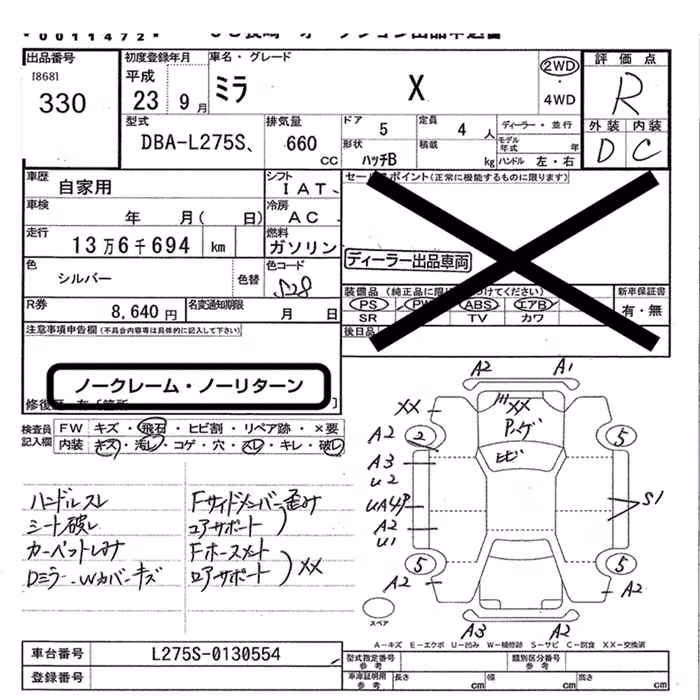 *0011472*
JU長崎 オークション出品申込書
出品番号
[868]
330
初度登録年月
平成
23 9月
車名・グレード
ミラ X
2WD
・
4WD
評価点
R
外装 内装
D C
型式
DBA-L275S、
排気量
660
CC
ドア 5
定員 4 人
ディーラー・並行
形状
ハッチB
積載
kg
モデル年式 年
ハンドル 左・右
車歴
自家用
シフト
IAT、
セールスポイント(正常に機能するものに限ります)
車検
年 月( 日)
冷房
AC、
走行
13万6千694 km
燃料
ガソリン
ディーラー出品車両
色
シルバー
色替
色コード
S28
装備品 (純正品に限り○をつけてください)
PS PW ABS エアB
SR TV カワ
新車保証書
有・無
R券
8,640円
名変通知期限
月 日
後日品
注意事項申告欄(不具合内容等は具体的に記入して下さい)
ノークレーム・ノーリターン
修復歴 有[箇所 ]
検査員
記入欄
FW キズ・飛石・ヒビ割・リペア跡・×要
内装 キズ・汚レ・コゲ・穴・スレ・キレ・破レ
ハンドルスレ
シート破レ
カーペットしみ
Dミラー、Wカバーキズ
Fサイドメンバー歪み
コアサポート
Fホースメント
ロアサポート
XX
A2 A1
XX
XX
Pゲゲ
ヒビ
A2
2
5
A3
U2
UA4P
A2
U1
S1
5
5
A2
A2
スペア
A3 A2
A-キズ E-エクボ U-凹み W-補修跡 S-サビ C-腐食 XX-交換済
車台番号
L275S-0130554
登録番号
型式指定番号
参考
類別区分番号
参考
車庫証明用
参考
長さ cm 幅 cm 高さ cm